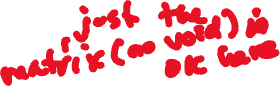 , just the
matrix (no void) is
OK here